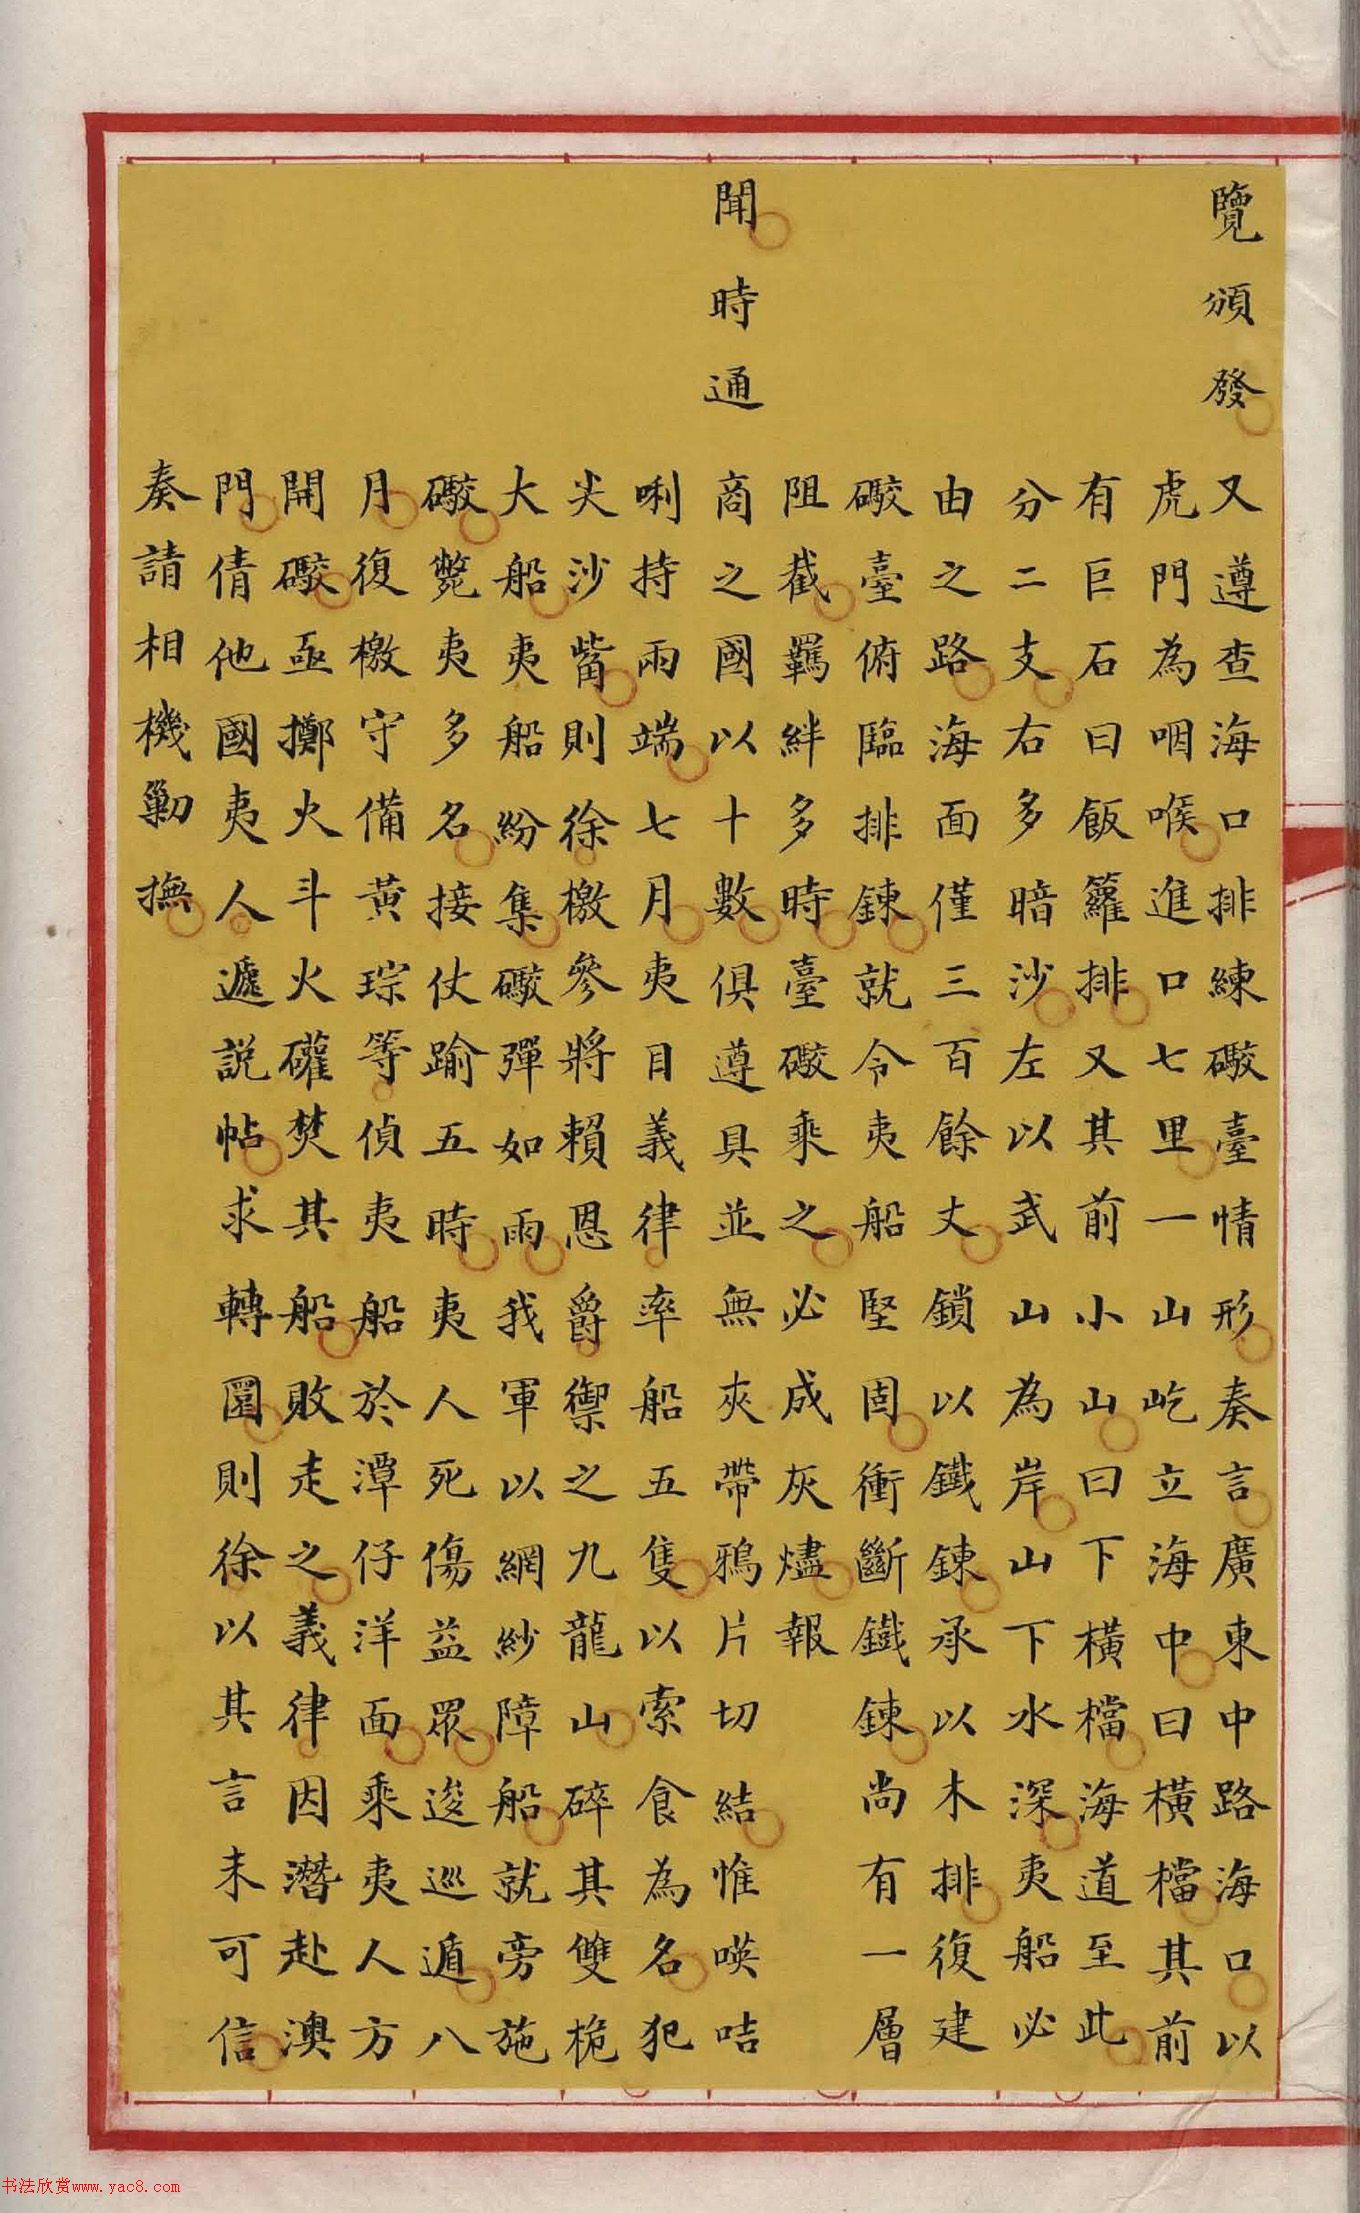 覽頒發又遵查海口排練礮臺情形奏言廣東中路海口以
虎門為咽喉進口七里一山屹立海中曰橫檔其前
有巨石曰飯籮排又其前小山曰下橫檔海道至此
分二支右多暗沙左以武山為岸山下水深夷船必
由之路海面僅三百餘丈鎖以鐵鍊承以木排復建
礮臺俯臨排鍊就令夷船堅固衝斷鐵鍊尚有一層
阻截羈絆多時臺礮乘之必成灰燼報
聞時通商之國以十數俱遵具並無夾帶鴉片切結惟𠸄咭
唎持兩端七月夷目義律率船五隻以索食為名犯
尖沙觜則徐檄參將賴恩爵禦之九龍山碎其雙桅
大船夷船紛集礮彈如雨我軍以網紗障船就旁施
礮斃夷多名接仗踰五時夷人死傷益眾逡巡遁八
月復檄守備黃琮等偵夷船於潭仔洋面乘夷人方
開礮亟擲火斗火礶焚其船敗走之義律因潛赴澳
門倩他國夷人遞說帖求轉圜則徐以其言未可信
奏請相機勦撫
书法欣赏www.yac8.com